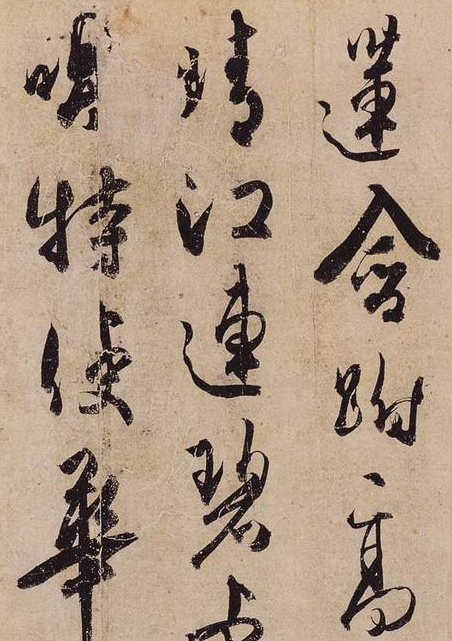 蓮跗高
晴江連碧
明特使華